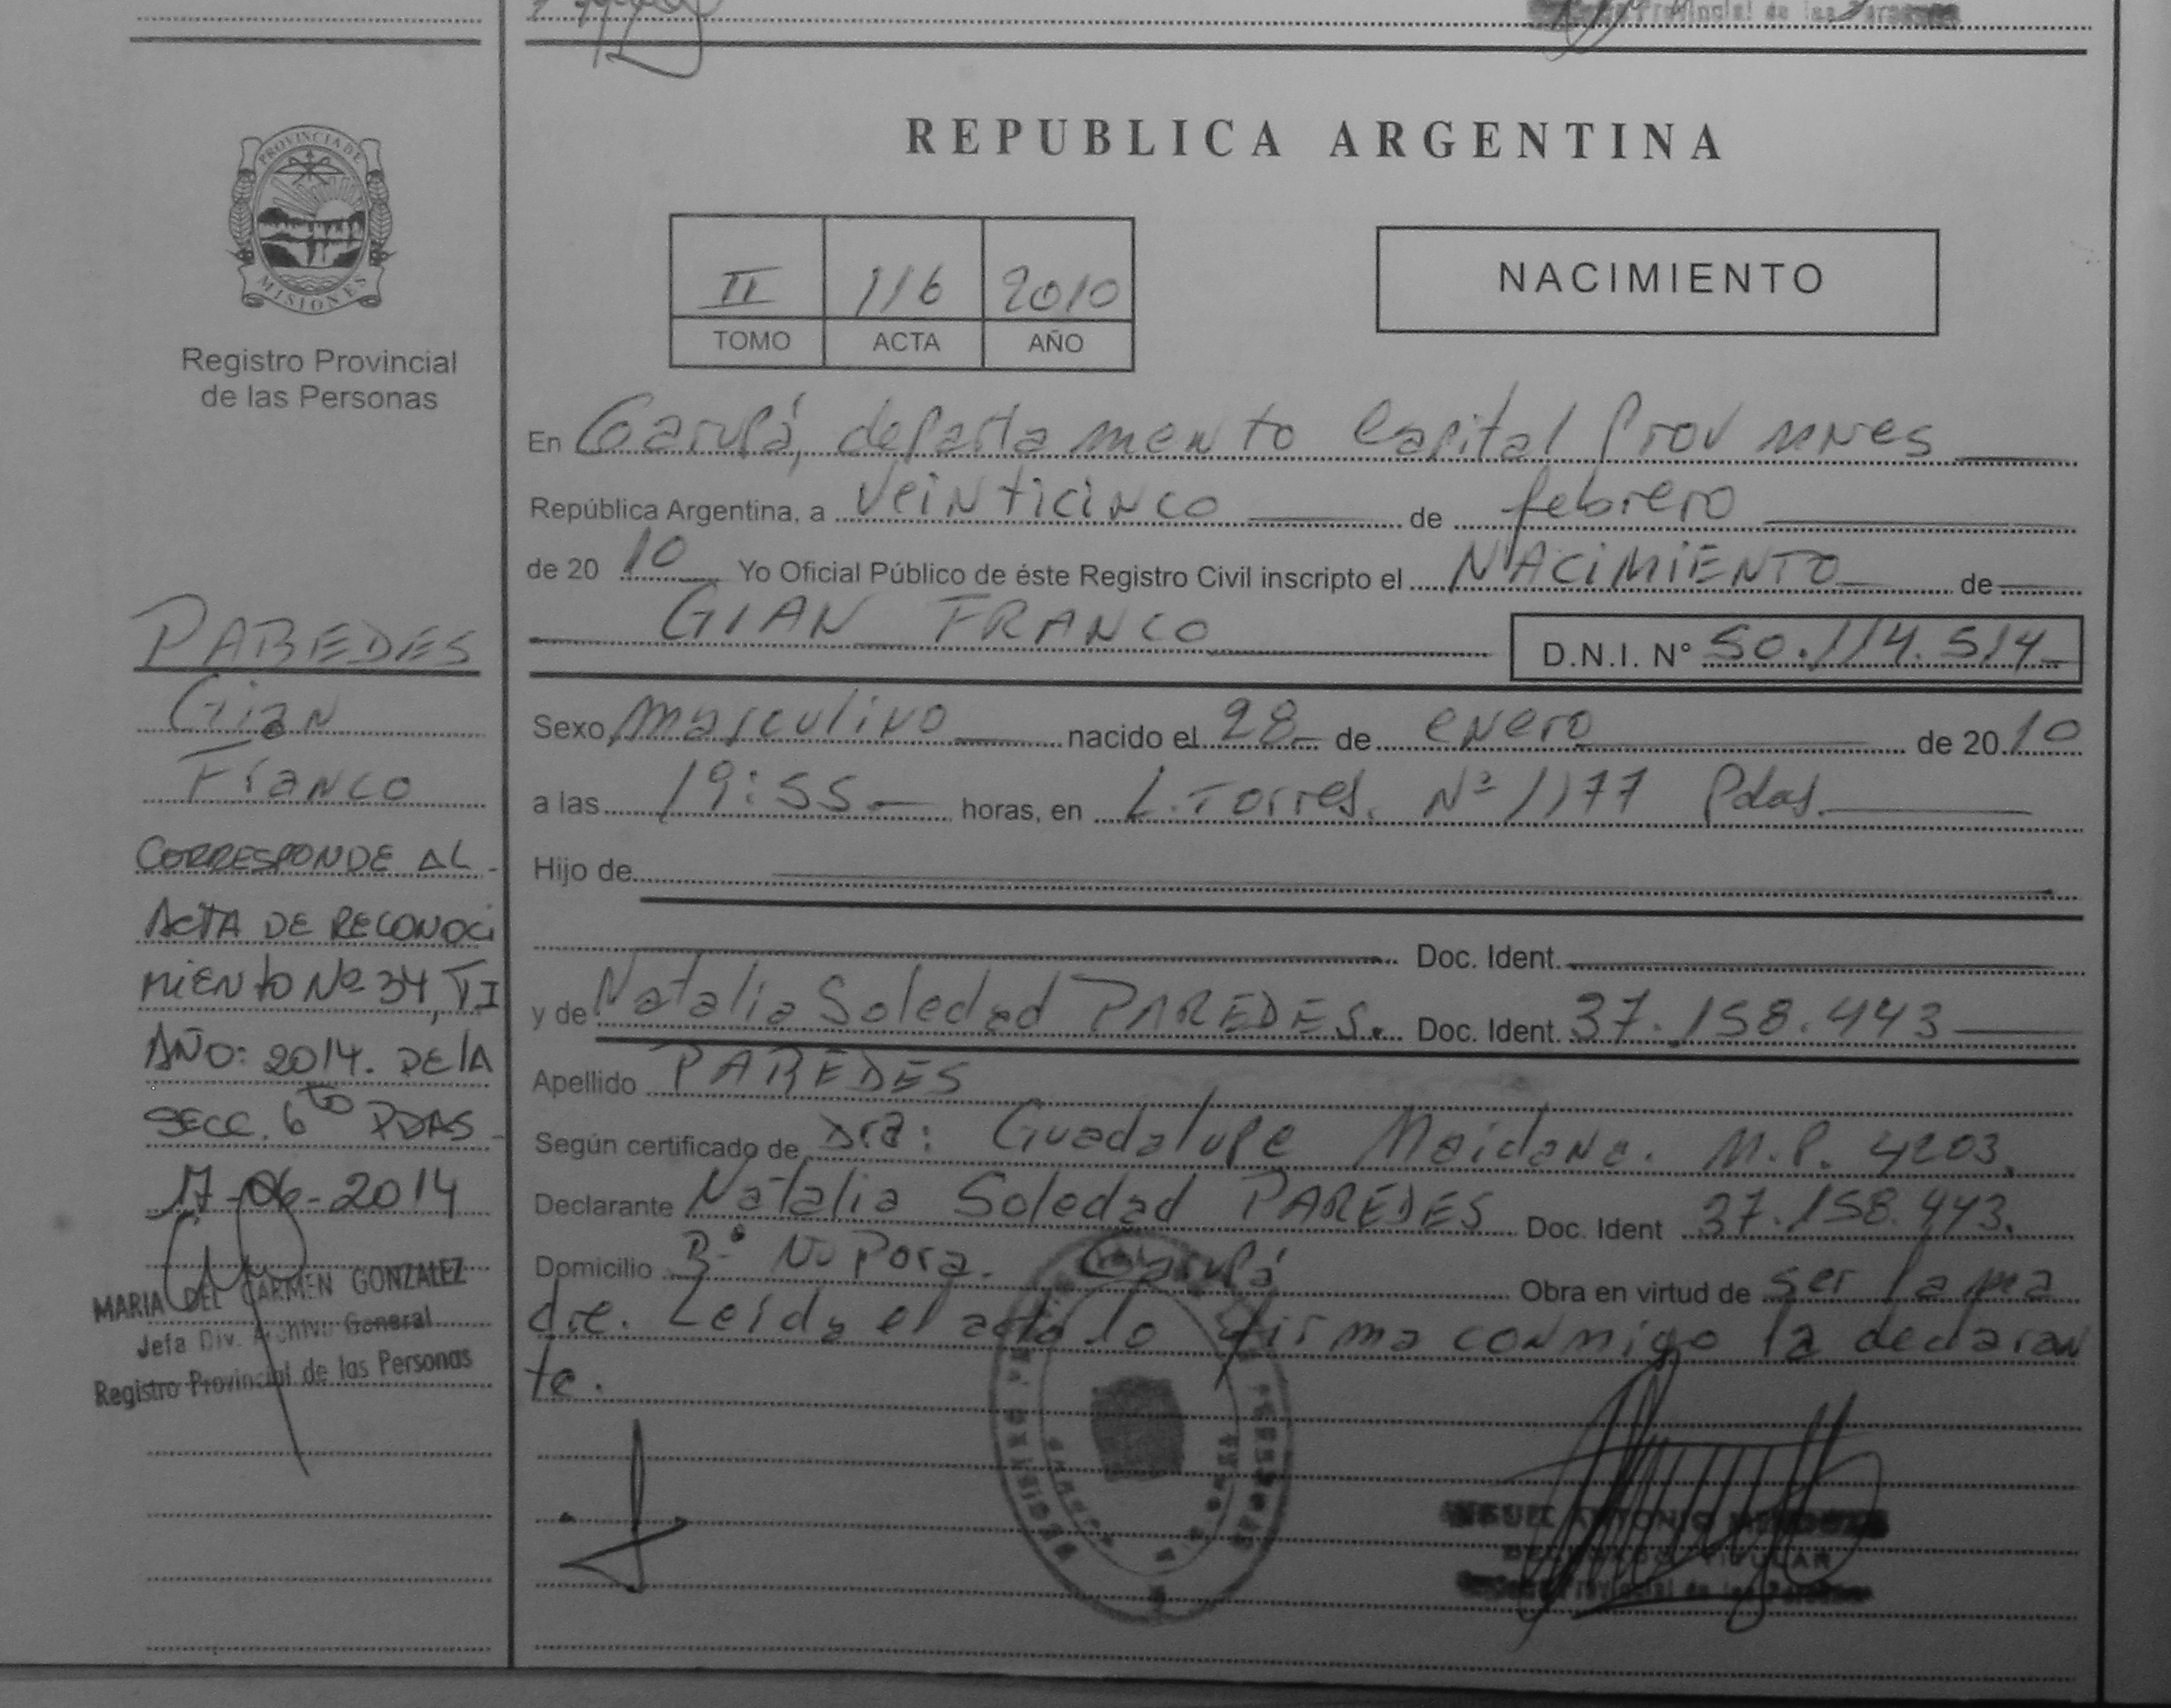 Provincial de las Personas
PROVINCIA DE
MISIONES
Registro Provincial
de las Personas
PAREDES
Gian
Franco
CORRESPONDE AL
ACTA DE RECONOCI
MIENTO Nº 34, TI
AÑO: 2014. DE LA
SECC. 6to PDAS
17-06-2014
MARIA DEL CARMEN GONZALEZ
Jefa Div. Archivo General
Registro Provincial de las Personas
REPUBLICA ARGENTINA
II 116 2010
TOMO ACTA AÑO
NACIMIENTO
En Garupá, departamento Capital Prov Mnes
República Argentina, a veinticinco de febrero
de 20 10 Yo Oficial Público de éste Registro Civil inscripto el NACIMIENTO de
GIAN FRANCO D.N.I. Nº 50.114.514
Sexo masculino nacido el 28 de enero de 20 10
a las 19:55 horas, en L. Torres. Nº 1177 Pdas.
Hijo de
Doc. Ident.
y de Natalia Soledad PAREDES. Doc. Ident. 37.158.443
Apellido PAREDES
Según certificado de Dra: Guadalupe Maidana. M.P. 4203.
Declarante Natalia Soledad PAREDES Doc. Ident 37.158.443.
Domicilio Bº Ñu Pora. Garupá Obra en virtud de ser la ma
dre. Leída el acta lo firma conmigo la declaran
te.
ANTONIO
TITULAR
Provincial de las Personas